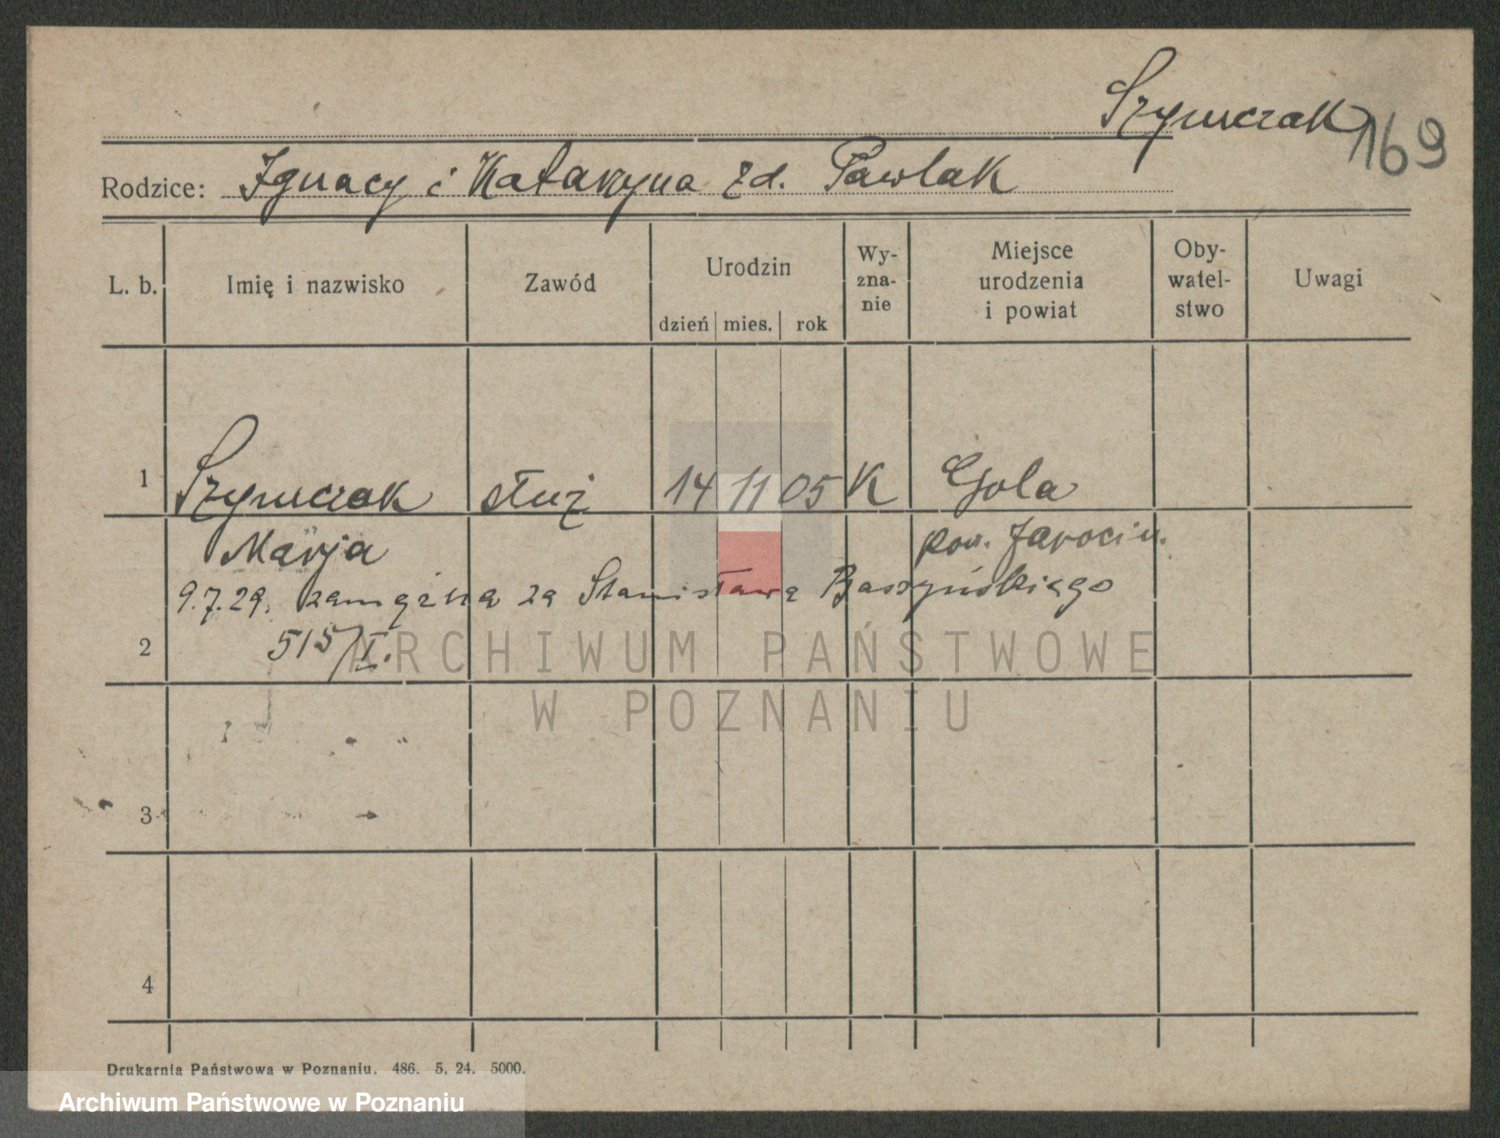 Szymczak
169
Rodzice: Ignacy i Katarzyna zd. Pawlak
L. b. Imię i nazwisko Zawód Urodzin dzień mies. rok Wy-zna-nie Miejsce urodzenia i powiat Oby-watel-stwo Uwagi
1 Szymczak służ 14 11 05 K Gola
Marja pow. Jarocin.
9.7.29. zamężna za Stanisława Baszyńskiego
2 515/I.
ARCHIWUM PAŃSTWOWE
W POZNANIU
3
4
Drukarnia Państwowa w Poznaniu. 486. 5. 24. 5000.
Archiwum Państwowe w Poznaniu